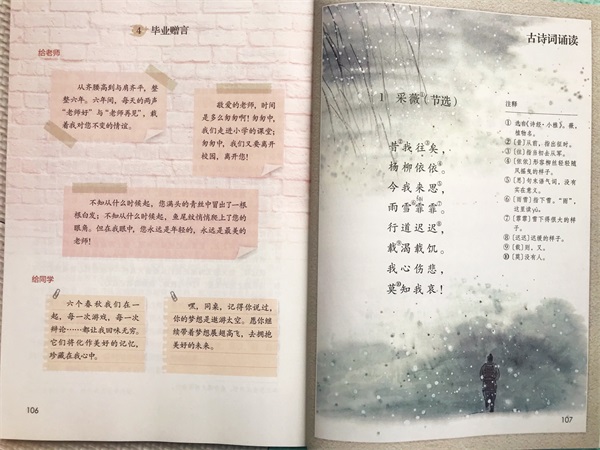 4 毕业赠言
给老师
从齐腰高到与肩齐平，整
整六年。六年间，每天的两声
“老师好”与“老师再见”，载
着我对您不变的情谊。
敬爱的老师，时间
是多么匆匆啊！匆匆中，
我们走进小学的课堂；
匆匆中，我们又要离开
校园，离开您！
不知从什么时候起，您满头的青丝中冒出了一根
根白发；不知从什么时候起，鱼尾纹悄悄爬上了您的
眼角。但在我眼中，您永远是年轻的，永远是最美的
老师！
给同学
六个春秋我们在一
起，每一次游戏，每一次
辩论……都让我回味无穷。
它们将化作美好的记忆，
珍藏在我心中。
嘿，同桌，记得你说过，
你的梦想是遨游太空。愿你继
续带着梦想展翅高飞，去拥抱
美好的未来。
106
古诗词诵读
1 采薇①（节选）
昔②我往③矣，
杨柳依依④。
今我来思⑤，
雨雪⑥霏霏⑦。
行道迟迟⑧，
载⑨渴载饥。
我心伤悲，
莫⑩知我哀！
注释
① 选自《诗经·小雅》。薇，
植物名。
② 〔昔〕从前，指出征时。
③ 〔往〕指当初去从军。
④ 〔依依〕形容柳丝轻轻随
风摇曳的样子。
⑤ 〔思〕句末语气词，没有
实在意义。
⑥ 〔雨雪〕指下雪。“雨”，
这里读yù。
⑦ 〔霏霏〕雪下得很大的样
子。
⑧ 〔迟迟〕迟缓的样子。
⑨ 〔载〕则，又。
⑩ 〔莫〕没有人。
107